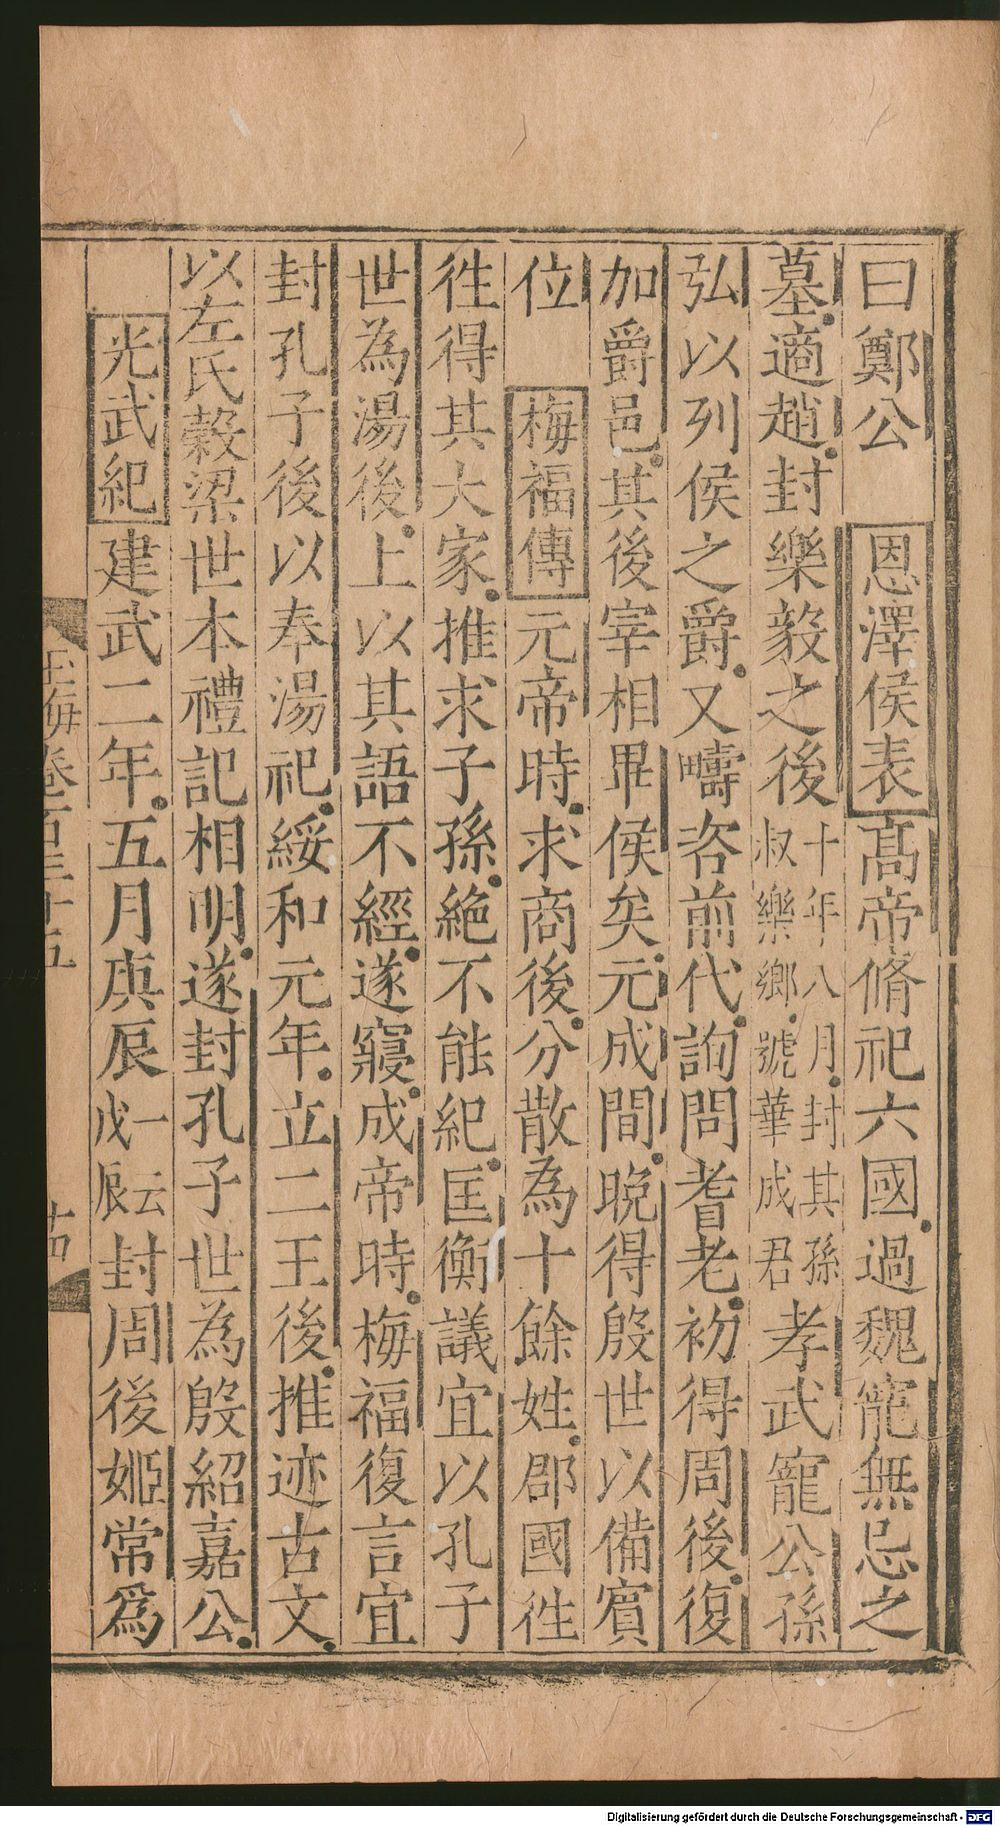 曰鄭公　恩澤侯表高帝脩祀六國過魏寵無忌之
墓適趙封樂毅之後十年八月封其孫叔樂鄉號華成君孝武寵公孫
弘以列侯之爵又疇咨前代詢問耆老初得周後復
加爵邑其後宰相畢侯矣元成間晚得殷世以備賓
位　梅福傳元帝時求商後分散為十餘姓郡國徃
徃得其大家推求子孫絶不能紀匡衡議宜以孔子
世為湯後上以其語不經遂寢成帝時梅福復言宜
封孔子後以奉湯祀綏和元年立二王後推迹古文
以左氏糓梁世本禮記相明遂封孔子世為殷紹嘉公
光武紀建武二年五月庚辰一云戊辰封周後姬常爲
玉海卷一百三十五
十四
Digitalisierung gefördert durch die Deutsche Forschungsgemeinschaft - DFG